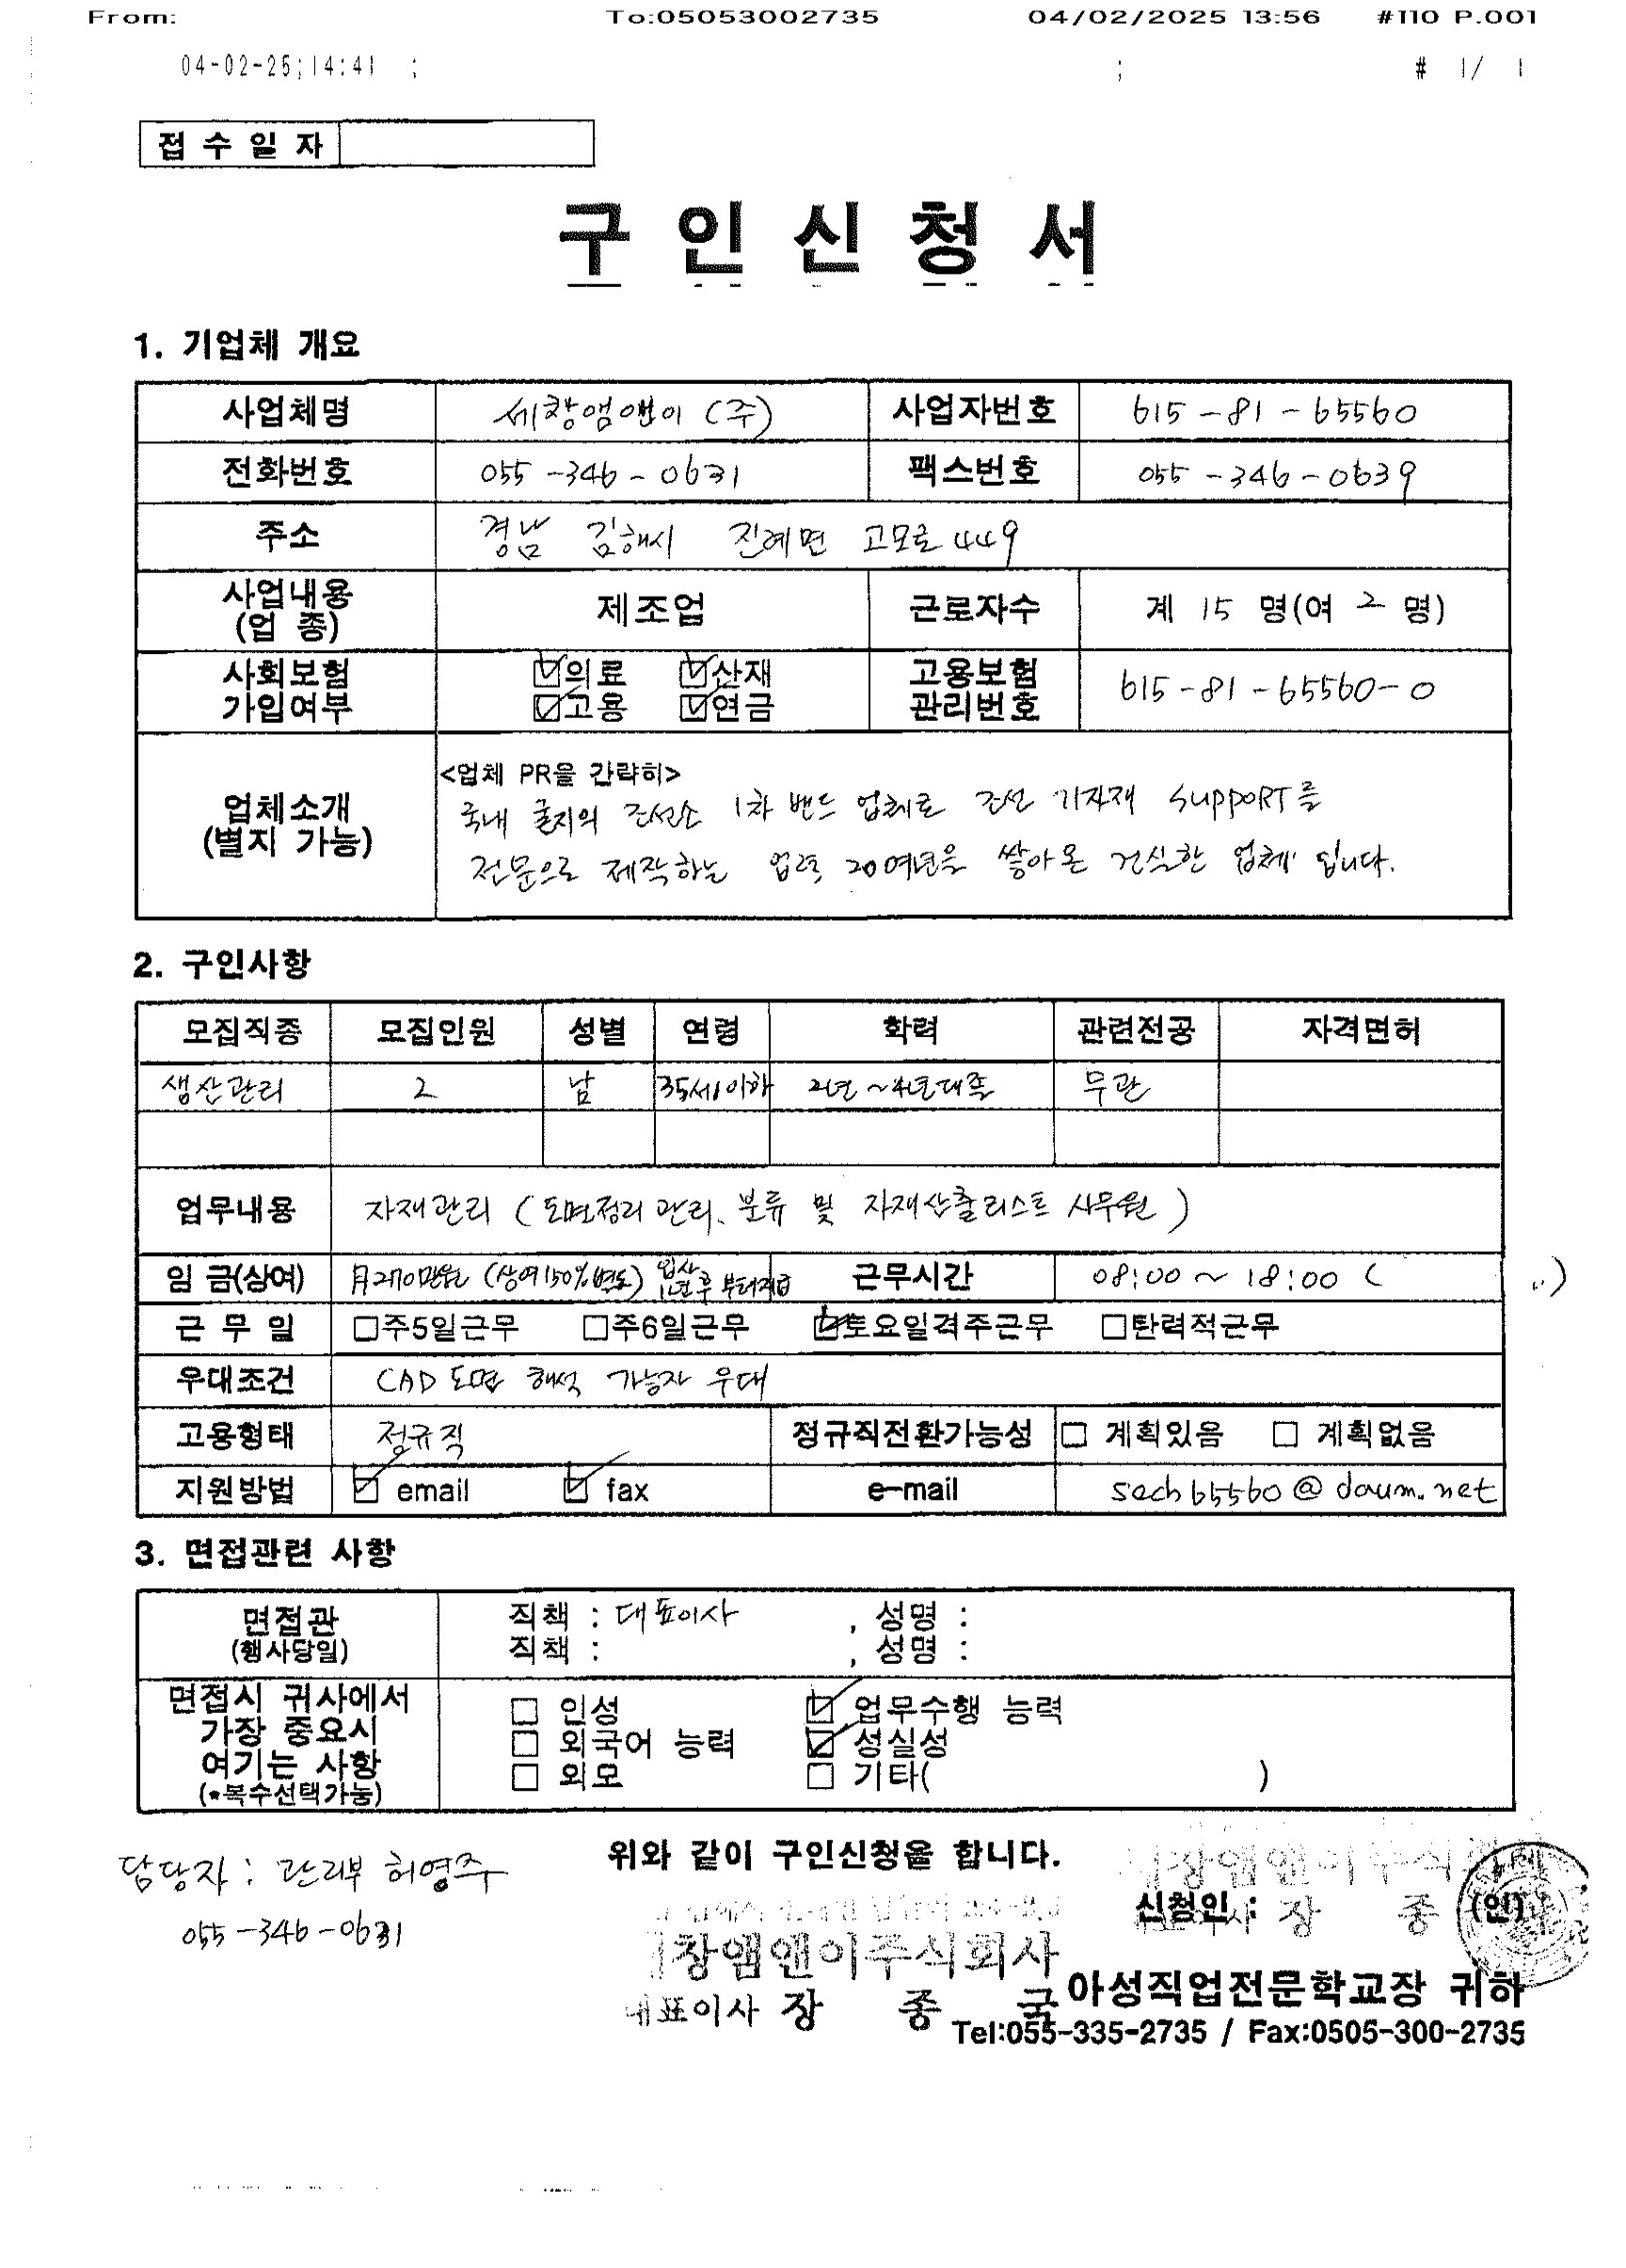 From: To:05053002735 04/02/2025 13:56 #110 P.001
04-02-25;14:41 ; ; # 1/ 1
접 수 일 자
구 인 신 청 서
1. 기업체 개요
사업체명 세창앰앤이 (주) 사업자번호 615-81-65560
전화번호 055-346-0631 팩스번호 055-346-0639
주소 경남 김해시 진례면 고모로 449
사업내용
(업 종) 제조업 근로자수 계 15 명(여 2 명)
사회보험 ☑의료 ☑산재 고용보험
가입여부 ☑고용 ☑연금 관리번호 615-81-65560-0
<업체 PR을 간략히>
업체소개 국내 굴지의 조선소 1차 밴드 업체로 조선 기자재 SUPPORT를
(별지 가능) 전문으로 제작하는 업력 20여년을 쌓아온 건실한 업체 입니다.
2. 구인사항
모집직종 모집인원 성별 연령 학력 관련전공 자격면허
생산관리 2 남 35세이하 2년~4년대졸 무관
업무내용 자재관리 (도면정리 관리, 분류 및 자재산출리스트 사무원)
임 금(상여) 月270만원 (상여150%별도) 입사 1년후 부터지급 근무시간 08:00 ~ 18:00 ( )
근 무 일 □주5일근무 □주6일근무 ☑토요일격주근무 □탄력적근무
우대조건 CAD 도면 해석 가능자 우대
고용형태 정규직 정규직전환가능성 □ 계획있음 □ 계획없음
지원방법 ☑ email ☑ fax e-mail sech65560@daum.net
3. 면접관련 사항
면접관 직책 : 대표이사 , 성명 :
(행사당일) 직책 : , 성명 :
면접시 귀사에서 □ 인성 ☑ 업무수행 능력
가장 중요시 □ 외국어 능력 ☑ 성실성
여기는 사항 □ 외모 □ 기타( )
(*복수선택가능)
담당자 : 관리부 허영주 위와 같이 구인신청을 합니다.
055-346-0631
창앰앤이주식
신청인 : 장 종 (인)
창앰앤이주식회사
대표이사 장 종 국
아성직업전문학교장 귀하
Tel:055-335-2735 / Fax:0505-300-2735